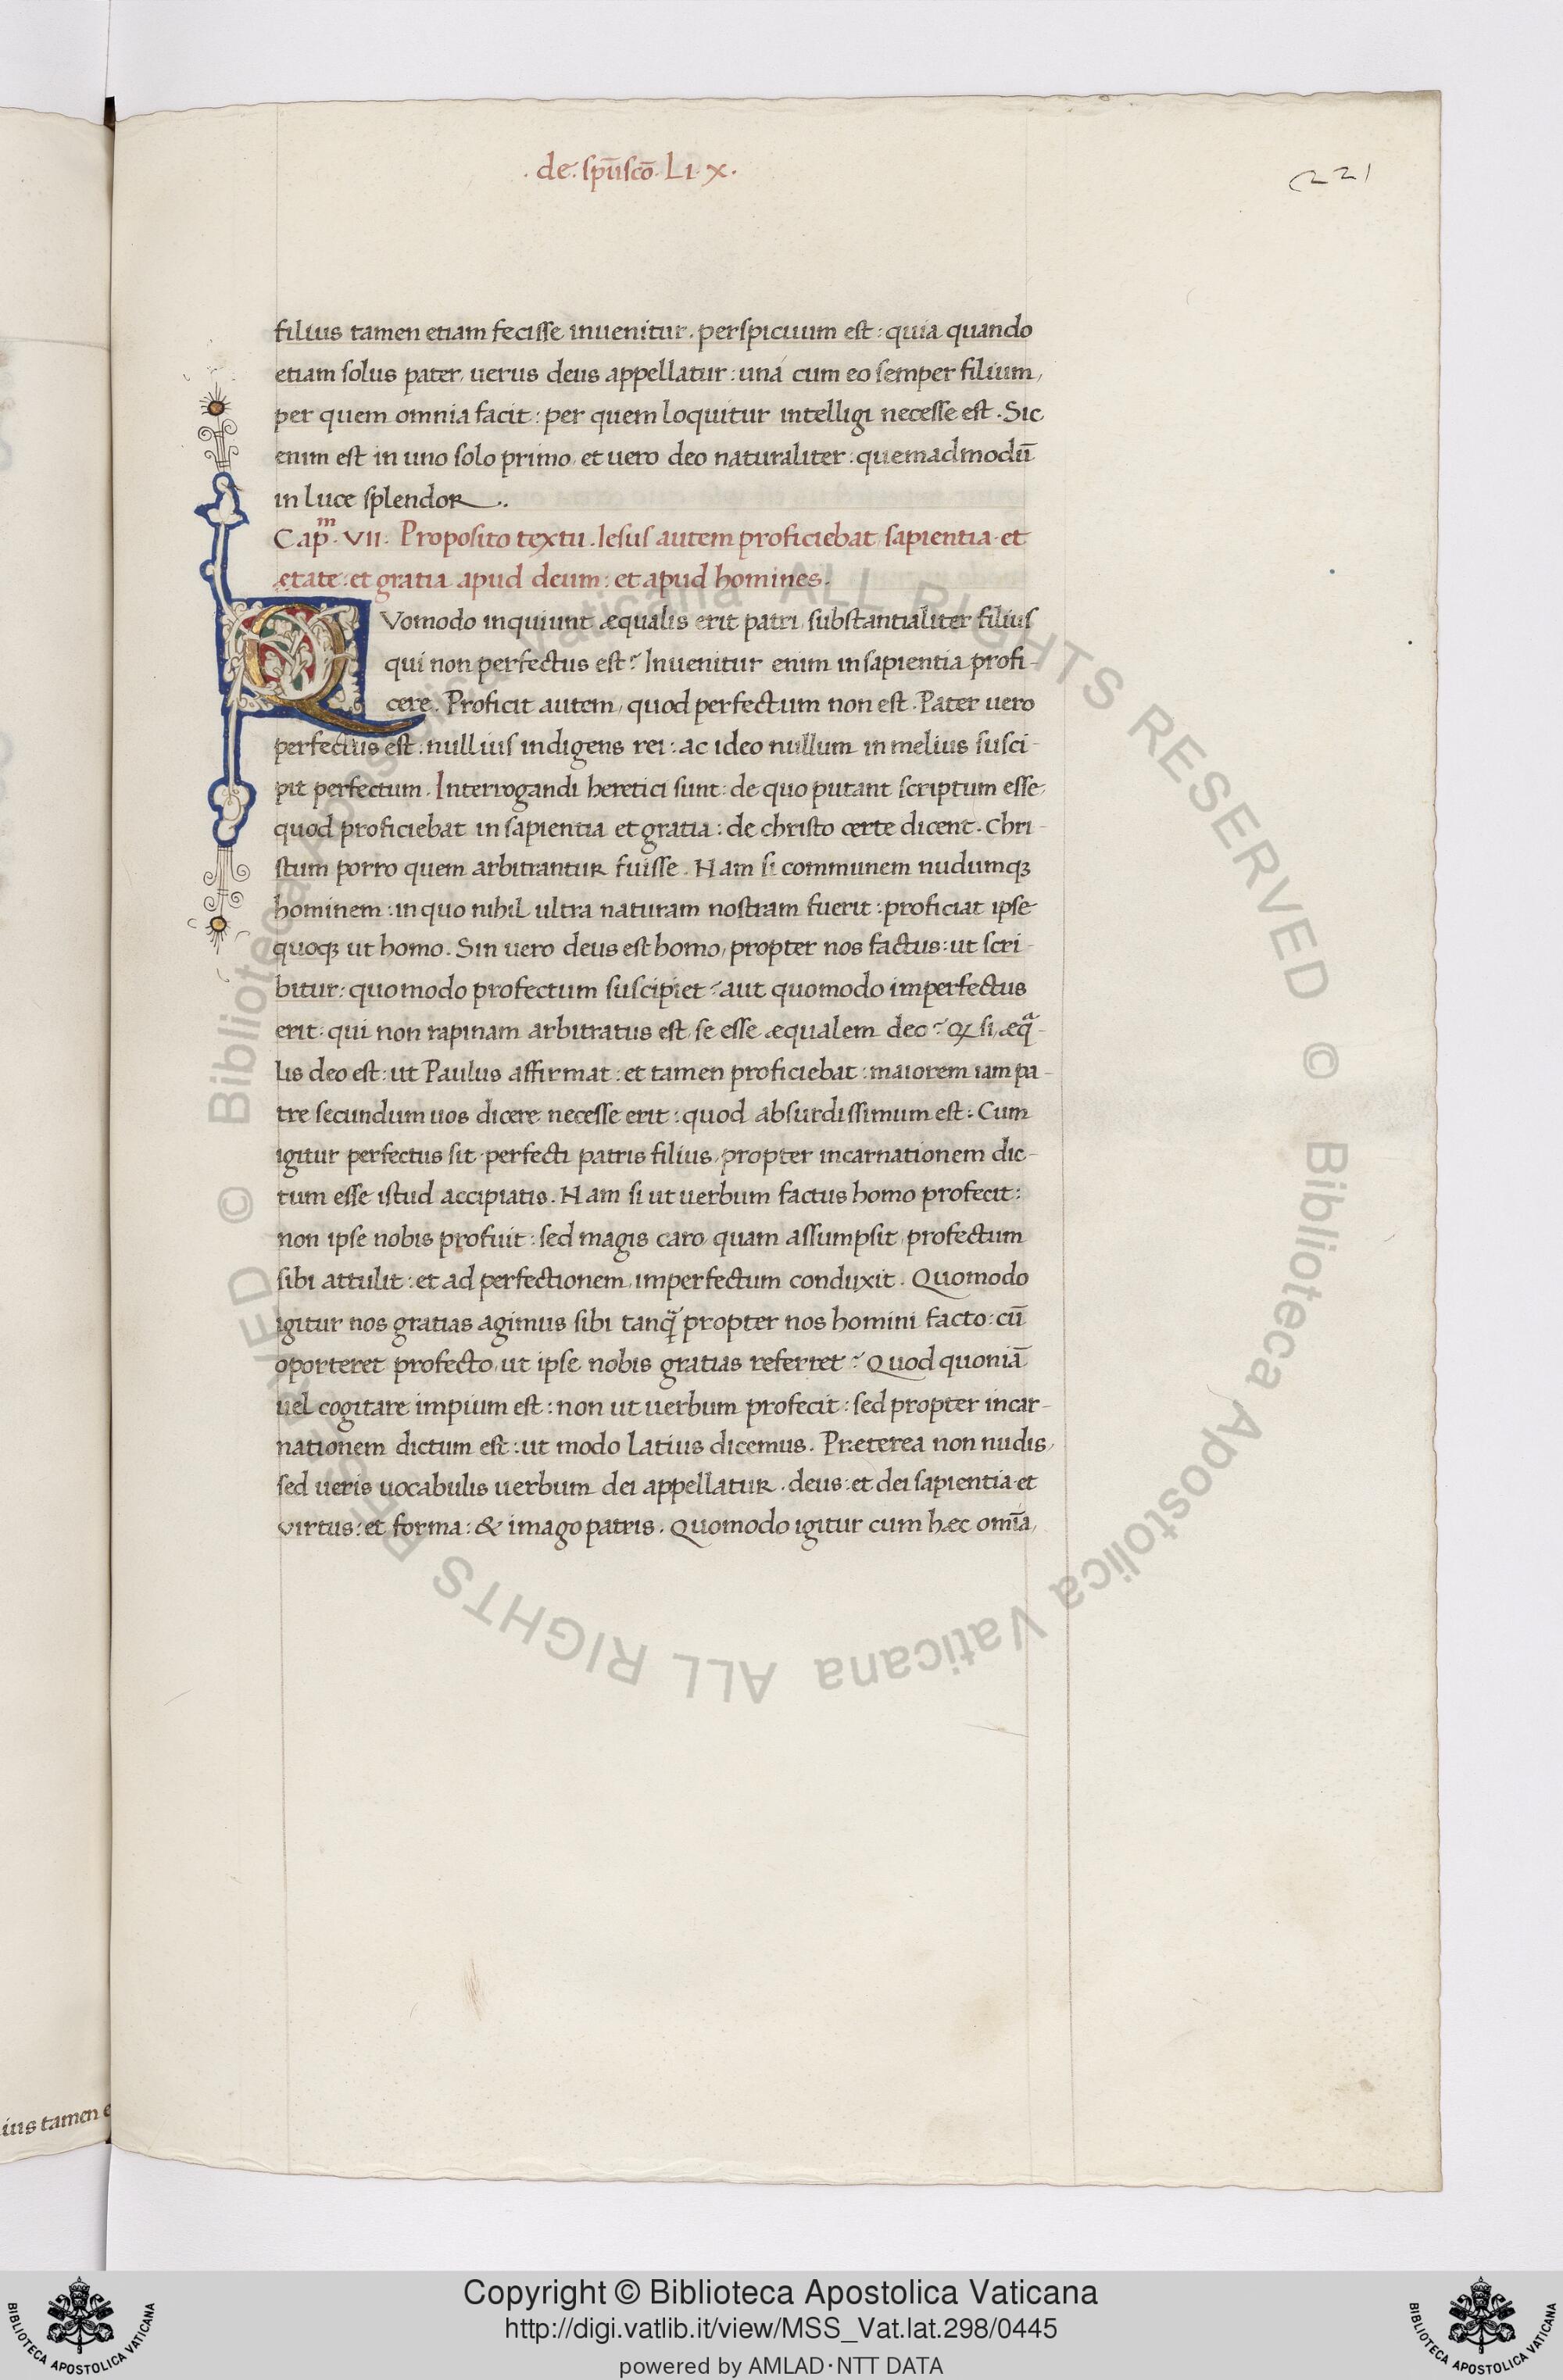 . de. spūscō. Li. x.
221
filius tamen etiam fecisse inuenitur. perspicuum est: quia quando
etiam solus pater, uerus deus appellatur: uná cum eo semper filium,
per quem omnia facit: per quem loquitur intelligi necesse est. Sic
enim est in uno solo primo, et uero deo naturaliter: quemadmodū
in luce splendor..
Cap.ᵐ VII. Proposito textu. Iesus autem proficiebat, sapientia et
ętate: et gratia apud deum: et apud homines.
QVomodo inquiunt æqualis erit patri, substantialiter filius
qui non perfectus est? Inuenitur enim in sapientia profi-
cere. Proficit autem, quod perfectum non est. Pater uero
perfectus est: nullius indigens rei: ac ideo nullum in melius susci-
pit perfectum. Interrogandi heretici sunt: de quo putant scriptum esse,
quod proficiebat in sapientia et gratia: de christo certe dicent. Chri-
stum porro quem arbitrantur fuisse. Nam si communem nudumqꝫ
hominem: in quo nihil ultra naturam nostram fuerit: proficiat ipse
quoqꝫ ut homo. Sin uero deus est homo, propter nos factus: ut scri-
bitur: quomodo profectum suscipiet? aut quomodo imperfectus
erit: qui non rapinam arbitratus est, se esse æqualem deo? Qꝫ si æqᵃ-
lis deo est: ut Paulus affirmat: et tamen proficiebat: maiorem iam pa-
tre secundum uos dicere necesse erit: quod absurdissimum est: Cum
igitur perfectus sit perfecti patris filius, propter incarnationem dic-
tum esse istud accipiatis. Nam si ut uerbum factus homo profecit:
non ipse nobis profuit: sed magis caro, quam assumpsit, profectum
sibi attulit: et ad perfectionem, imperfectum conduxit. Quomodo
igitur nos gratias agimus sibi tanq̃ propter nos homini facto: cū
oporteret profecto, ut ipse nobis gratias referret? Quod quoniā
uel cogitare impium est: non ut uerbum profecit: sed propter incar-
nationem dictum est: ut modo latius dicemus. Præterea non nudis,
sed ueris uocabulis uerbum dei appellatur. deus: et dei sapientia et
virtus: et forma: & imago patris. Quomodo igitur cum hæc omīa,
ius tamen e
© Biblioteca Apostolica Vaticana ALL RIGHTS RESERVED © Biblioteca Apostolica Vaticana ALL RIGHTS RESERVED
Copyright © Biblioteca Apostolica Vaticana
http://digi.vatlib.it/view/MSS_Vat.lat.298/0445
powered by AMLAD·NTT DATA
BIBLIOTECA APOSTOLICA VATICANA
BIBLIOTECA APOSTOLICA VATICANA